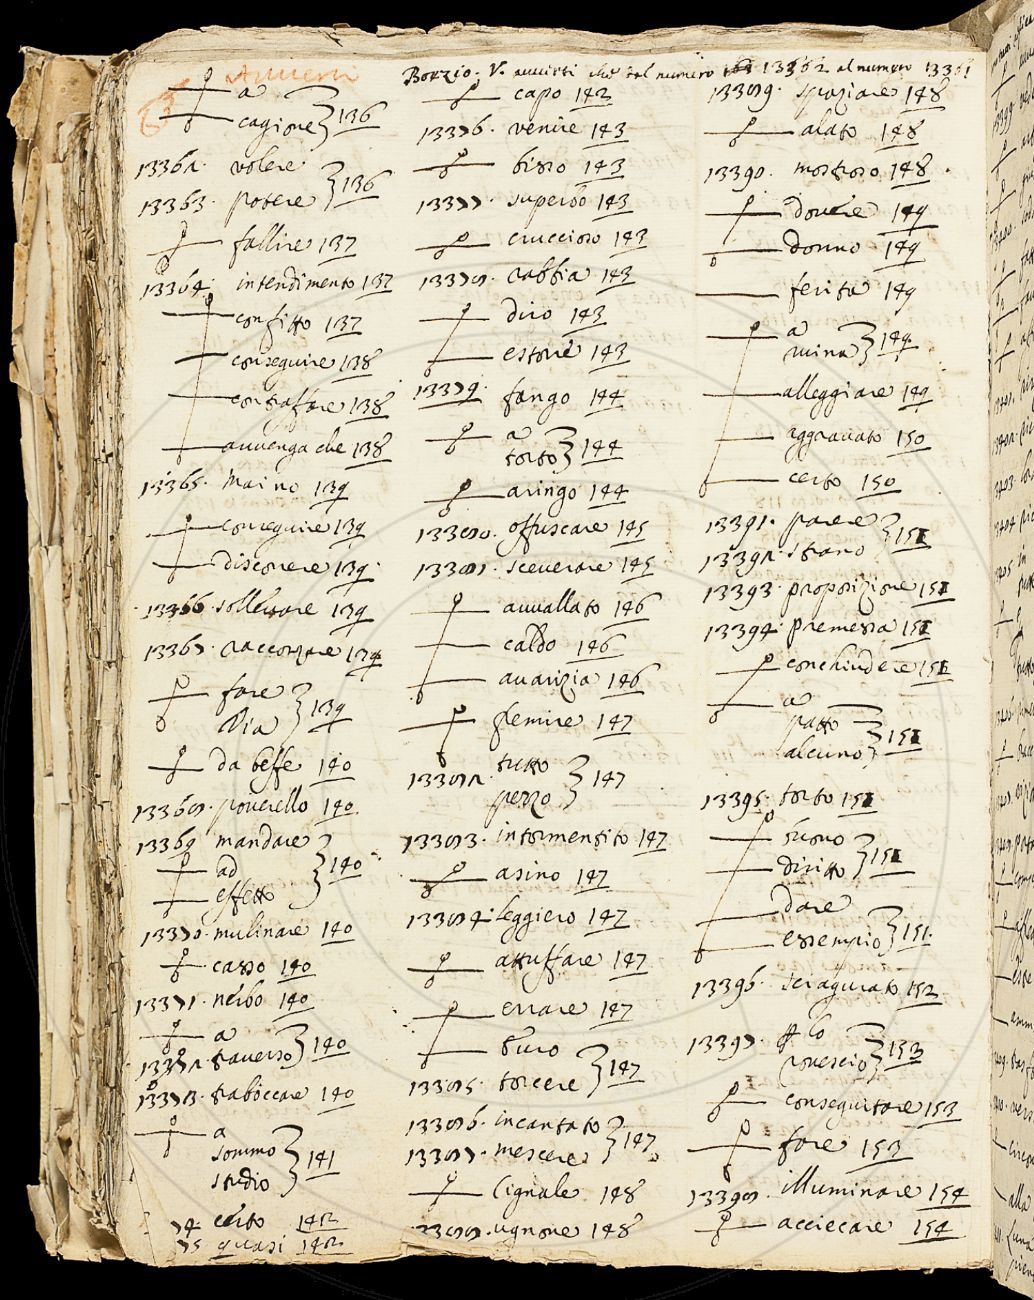 Avverti
Borzio. V. avvirti che dal numero 13362 al numero 13361
a
cagione } 136
13362. volere
13363. potere } 136
fallire 137
13364. intendimento 137
confitto 137
conseguire 138
contrafare 138
avvenga che 138
13365. Maino 139
conseguire 139
discorrere 139.
13366. sollevare 139
13367. raccorzare 139
fare
via } 139
da beffe 140
13368. poverello 140
13369 mandare
ad
effetto } 140
13370. mulinare 140
casso 140
13371. nerbo 140
a
13372. traverso } 140
13373. traboccare 140
a
sommo
studio } 141
74. certo 142
75 quasi 142
capo 142
13376. venire 143
bisso 143
13377. superbo 143
cruccioso 143
13378. rabbia 143
diro 143
estorre 143
13379. fango 144
a
torto } 144
aringo 144
13380. offuscare 145
13381. sceverare 145
avvallato 146
caldo 146
avarizia 146
gemire 147
13382. tutto
pezzo } 147
13383. intormentito 147
asino 147
13384. leggiero 147
attuffare 147
errare 147
duro
13385. torcere } 147
13386. incantato
13387. mescere } 147
Cignale 148
13388. ugnone 148
13389. spaziare 148
alato 148
13390. mostroso 148
dovere 149
donno 149
ferita 149
a
ruina } 149
alleggiare 149
aggravato 150
certo 150
13391. parere
13392. strano } 151
13393. proposizione 151
13394. premessa 151
conchiudere 151
a
patto
alcuno } 151
13395. torto 151
duro
diritto } 151
dare
essempio } 151.
13396. sciagurato 152
13397. lo
rovescio } 153
conseguitare 153
fare 153
13398. illuminare 154
acciecare 154